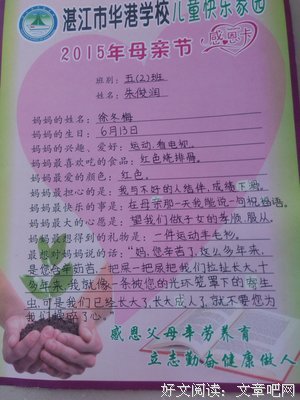 湛江市华港学校儿童快乐家园
2015年母亲节感恩卡
班别:五(2)班
姓名:朱俊润
妈妈的姓名:徐冬梅
妈妈的生日:6月13日
妈妈的兴趣、爱好:运动.看电视。
妈妈最喜欢吃的食品:红色烧排骨。
妈妈最爱的颜色:红色。
妈妈最担心的是:我与不好的人结伴,成绩下滑。
妈妈最快乐的事是:在母亲那一天能能说一句祝福语。
妈妈最大的心愿是:望我们做子女的孝顺,服从。
妈妈最想得到的礼物是:一件运动羊毛衫。
最想对妈妈说的话:“妈,您辛苦了,这么多年来,
是您含辛茹苦,把屎一把尿把我们拉扯长大,十
多年来,我就像一条被您的光环笼罩下的寄生
虫,可是我们已经长大了,长大成人了,就不要您为
我们操碎了心。”
感恩父母辛劳养育
立志勤奋健康做人
好文阅读:文章吧网